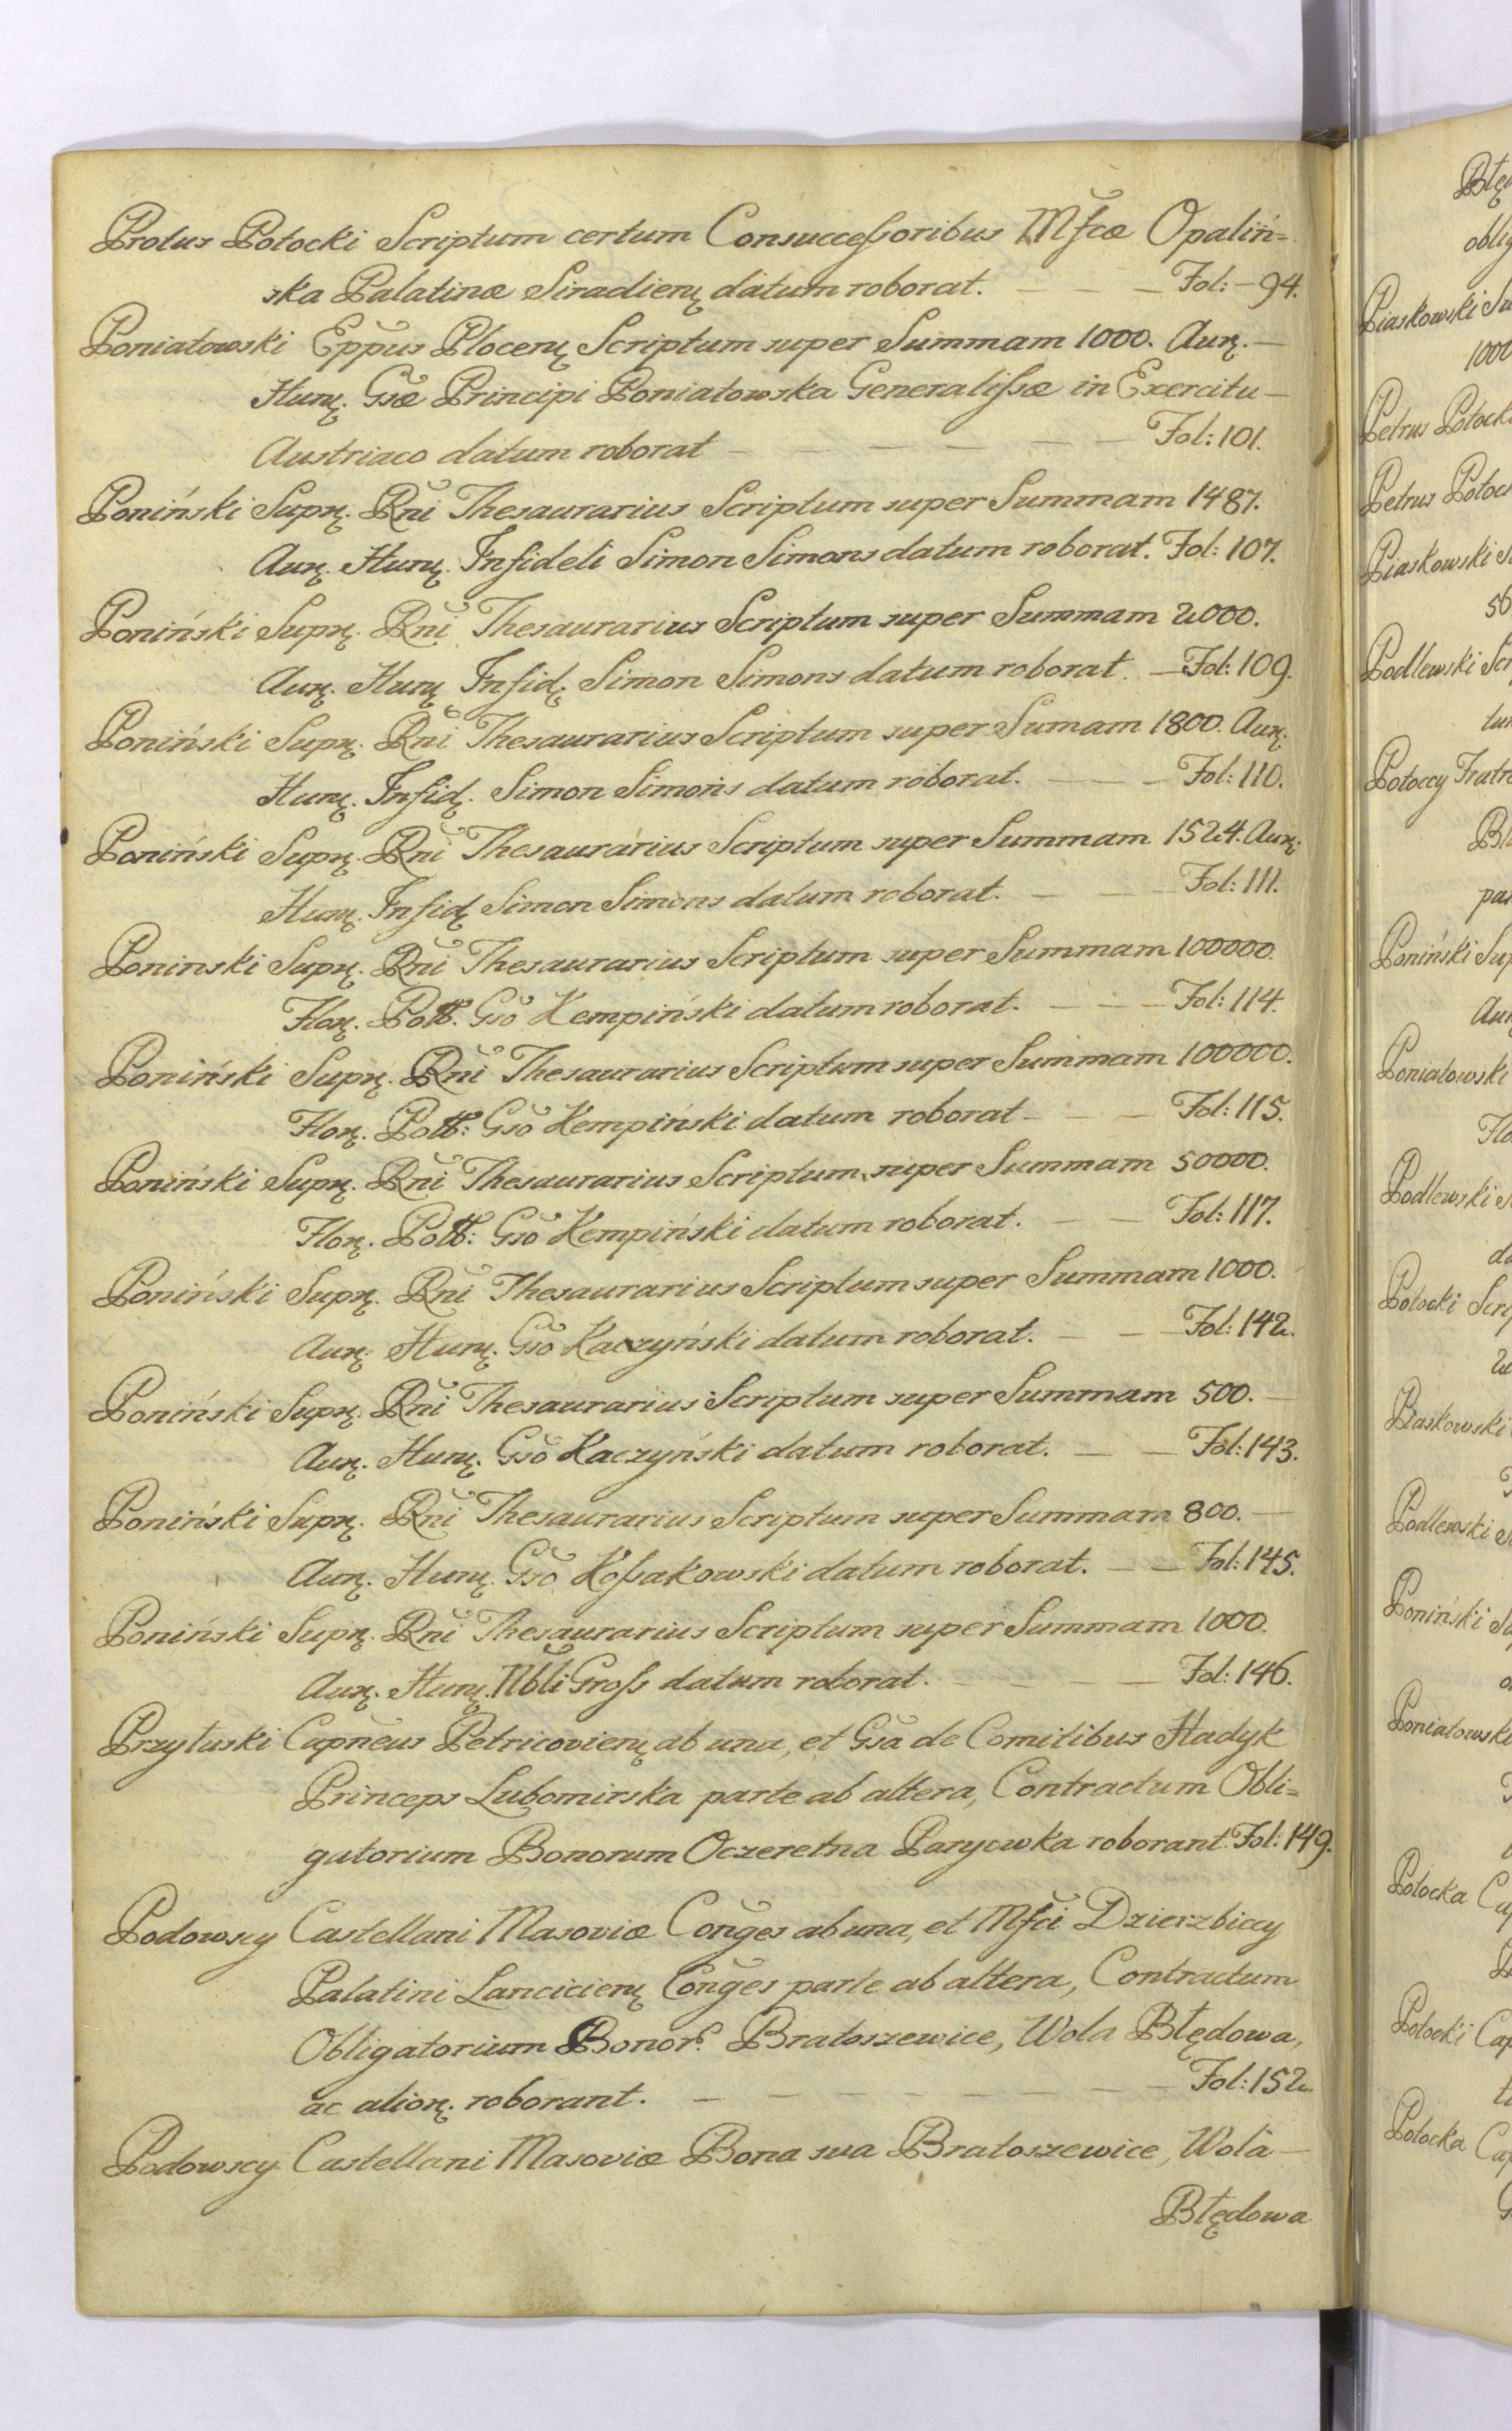 Protus Potocki Scriptum certum Consuccessoribus Mfcæ Opaliń=
ska Palatinæ Siradien datum roborat. — — — Fol: 94.
Poniatowski Eppus Plocen Scriptum super Summam 1000. Aur. —
Hun. Gsæ Principi Poniatowska Generalissæ in Exercitu —
Austriaco datum roborat — — — — — Fol: 101.
Poniński Supr. Rni Thesaurarius Scriptum super Summam 1487.
Aur. Hun. Infideli Simon Simons datum roborat. Fol: 107.
Poniński Supr. Rni Thesaurarius Scriptum super Summam 2000.
Aur. Hun Infid. Simon Simons datum roborat. — Fol: 109.
Poniński Supr. Rni Thesaurarius Scriptum super Sumam 1800. Aur.
Hun. Infid. Simon Simons datum roborat. — — Fol: 110.
Poniński Supr. Rni Thesaurarius Scriptum super Summam 1524. Aur.
Hun. Infid Simon Simons datum roborat. — — — Fol: 111.
Poninski Supr. Rni Thesaurarius Scriptum super Summam 100000.
Flor. Poll. Gso Kempiński datum roborat. — — — Fol: 114.
Poniński Supr. Rni Thesaurarius Scriptum super Summam 100000.
Flor. Poll: Gso Kempiński datum roborat — — — Fol: 115.
Poniński Supr. Rni Thesaurarius Scriptum super Summam 50000.
Flor. Poll: Gso Kempiński datum roborat. — — Fol: 117.
Poniński Supr. Rni Thesaurarius Scriptum super Summam 1000.
Aur. Hun. Gso Kaczyński datum roborat. — — Fol: 142.
Poniński Supr. Rni Thesaurarius Scriptum super Summam 500. —
Aur. Hun. Gso Kaczyński datum roborat. — — Fol: 143.
Poniński Supr. Rni Thesaurarius Scriptum super Summam 800. —
Aur. Hun. Gso Kossakowski datum roborat. — — Fol: 145.
Poniński Supr. Rni Thesaurarius Scriptum super Summam 1000.
Aur. Hun. Nbli Gross datum roborat. — — — — Fol: 146.
Przyłuski Capneus Petricovien ab una, et Gsa de Comitibus Hadyk
Princeps Lubomirska parte ab altera, Contractum Obli=
gatorium Bonorum Oczeretna Parycwka roborant. Fol: 149.
Podowscy Castellani Masoviæ Conges ab una, et Mfci Dzierzbiccy
Palatini Lancicien Conges parte ab altera, Contractum
Obligatorium Bonor. Bratoszewice, Wola Błędowa,
ac alior. roborant. — — — — — — — Fol: 152.
Podowscy Castellani Masoviæ Bona sua Bratoszewice, Wola —
Błędowa
Piaskowski
1000
Petrus Potocki
Petrus
Piaskowski
Podlewski
Potoccy
Poniński
Poniatowski
Podlewski
Potocki
Piaskowski
Podlewski
Poniński
Poniatowski
Potocka
Potocki
Potocka